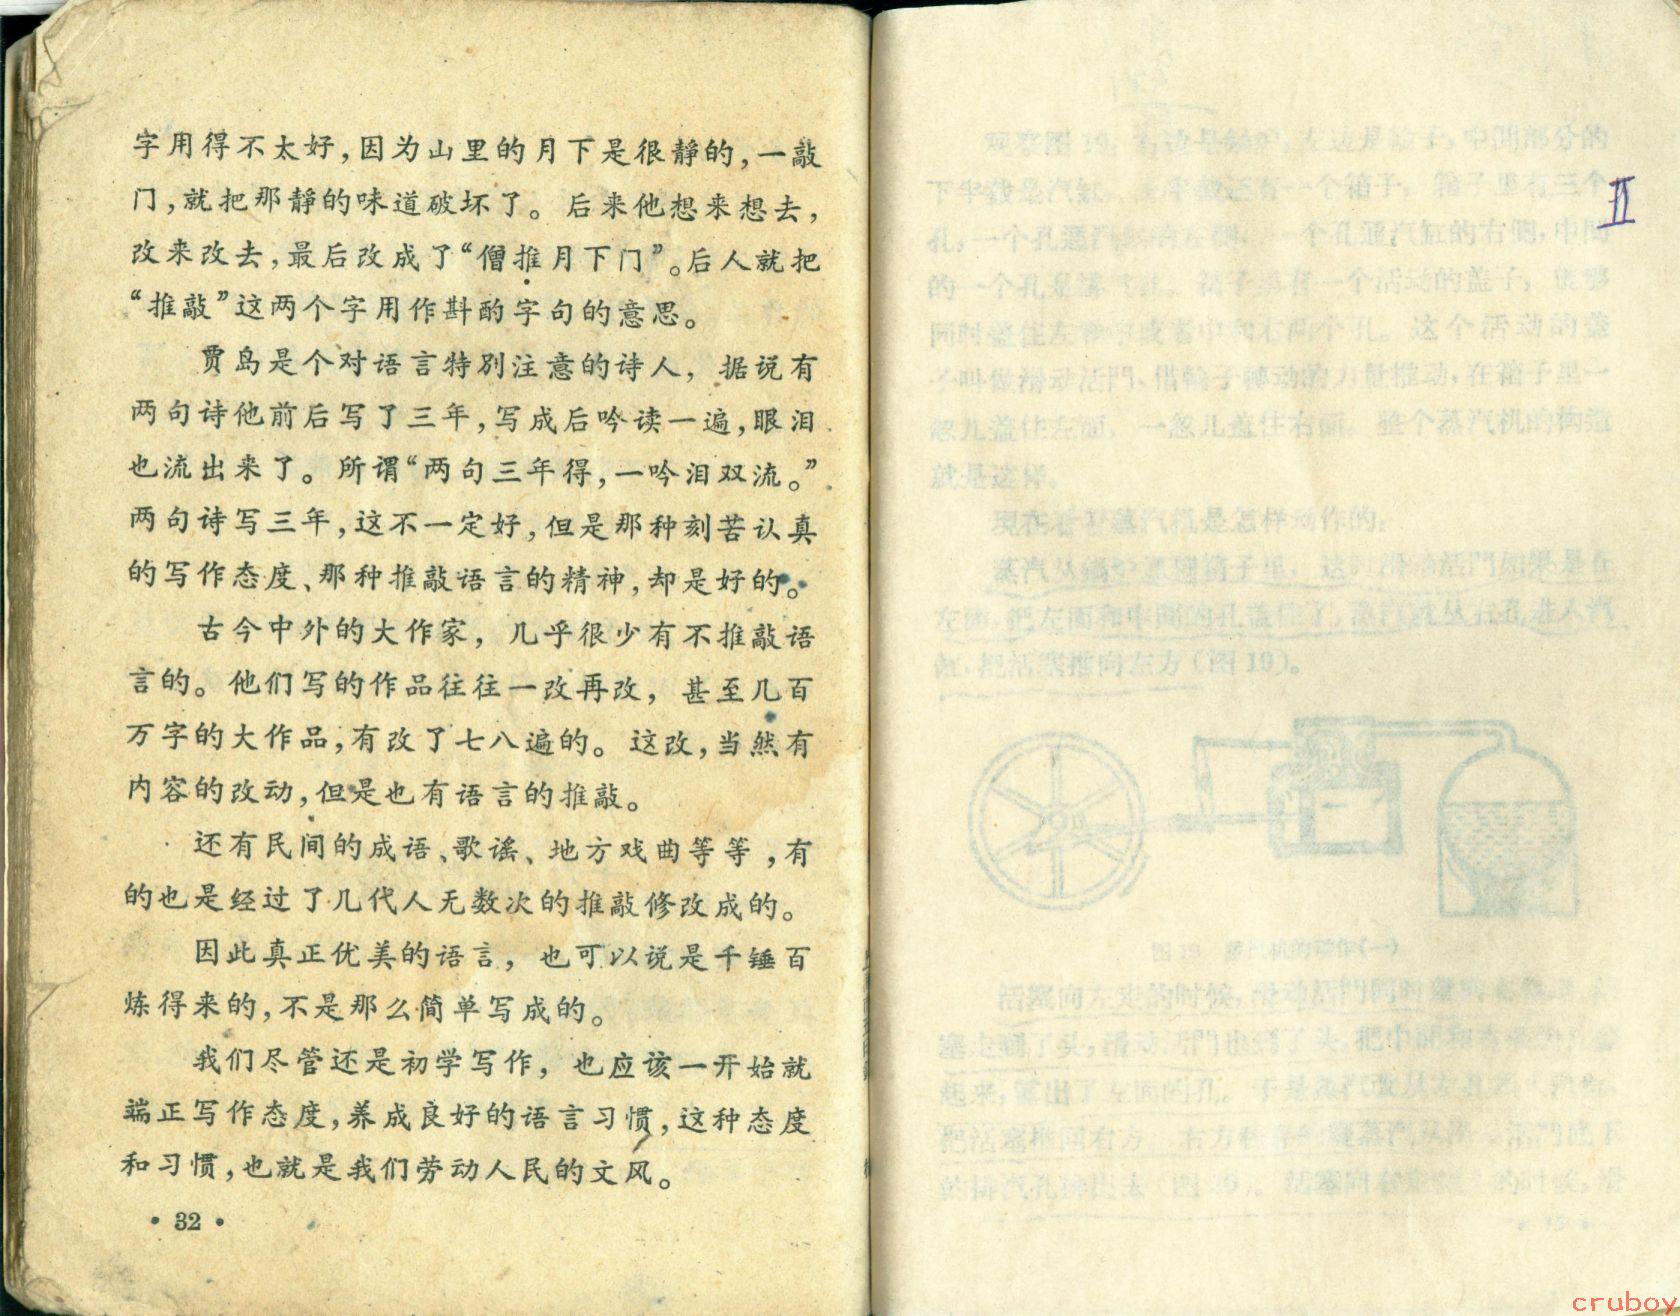 字用得不太好，因为山里的月下是很静的，一敲
门，就把那静的味道破坏了。后来他想来想去，
改来改去，最后改成了“僧推月下门”。后人就把
“推敲”这两个字用作斟酌字句的意思。
贾岛是个对语言特别注意的诗人，据说有
两句诗他前后写了三年，写成后吟读一遍，眼泪
也流出来了。所谓“两句三年得，一吟泪双流。”
两句诗写三年，这不一定好，但是那种刻苦认真
的写作态度、那种推敲语言的精神，却是好的。
古今中外的大作家，几乎很少有不推敲语
言的。他们写的作品往往一改再改，甚至几百
万字的大作品，有改了七八遍的。这改，当然有
内容的改动，但是也有语言的推敲。
还有民间的成语、歌谣、地方戏曲等等，有
的也是经过了几代人无数次的推敲修改成的。
因此真正优美的语言，也可以说是千锤百
炼得来的，不是那么简单写成的。
我们尽管还是初学写作，也应该一开始就
端正写作态度，养成良好的语言习惯，这种态度
和习惯，也就是我们劳动人民的文风。
• 32 •
II
观察图19，右边是 左边是輪子，中間部分的
下半截是汽缸， 还有一个箱子。箱子里有三个
孔，一个孔通汽 一个孔通汽缸的右侧，中間
的一个孔是 箱子里有一个活动的盖子，能够
同时盖住左 或者中和右两个孔。这个活动的盖
子叫做滑动活門，借輪子轉动的力量推动，在箱子里一
忽儿盖住左面，一忽儿盖住右面。整个蒸汽机的构造
就是这样。
現在 蒸汽机是怎样动作的。
蒸汽从鍋 通到箱子里，这时滑动活門如果是在
左面，把左面和中間的孔盖住了，蒸汽就从右孔进入汽
缸，把活塞推向左方（图19）。
图19 蒸汽机的 作（一）
活塞向左走的时候，滑动活門同时
塞走到了头，滑动活門也到了头，把中 和右
起来，露出了左面的孔。于是蒸汽改从左孔
把活塞推向右方。右方 蒸汽从滑 活門底下
的排汽孔排出去（图20）。活塞向右 的时候，滑
cruboy